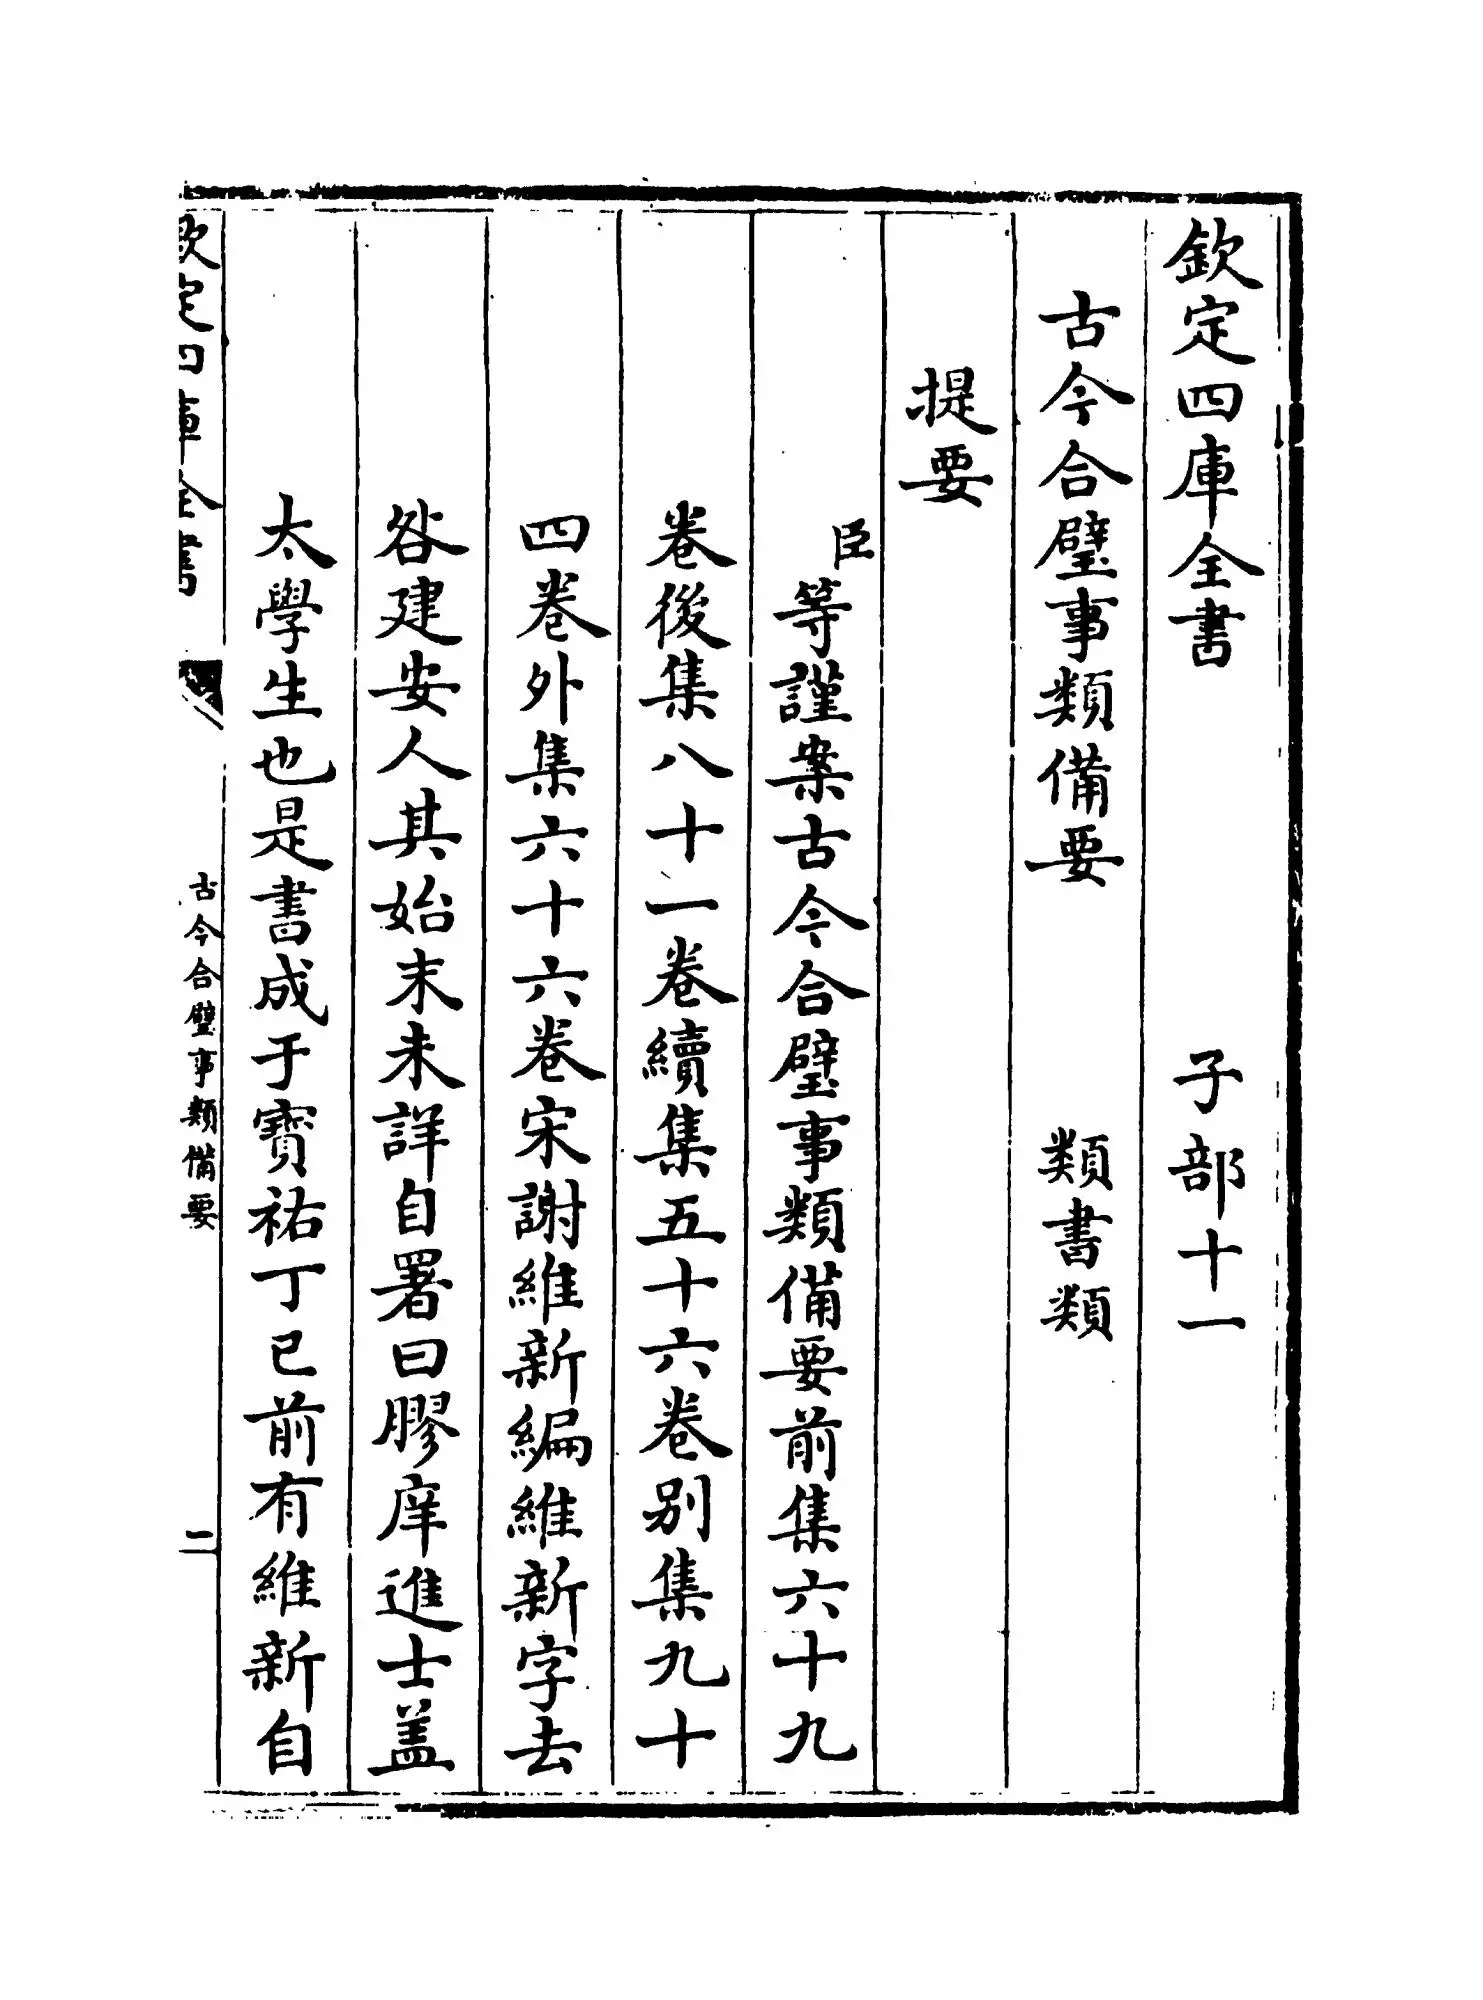 欽定四庫全書 子部十一
古今合璧事類備要 類書類
提要
臣等謹案古今合璧事類備要前集六十九
卷後集八十一卷續集五十六卷别集九十
四卷外集六十六卷宋謝維新編維新字去
咎建安人其始末未詳自署曰膠庠進士盖
太學生也是書成于寳祐丁已前有維新自
欽定四庫全書
古今合璧事類備要
一